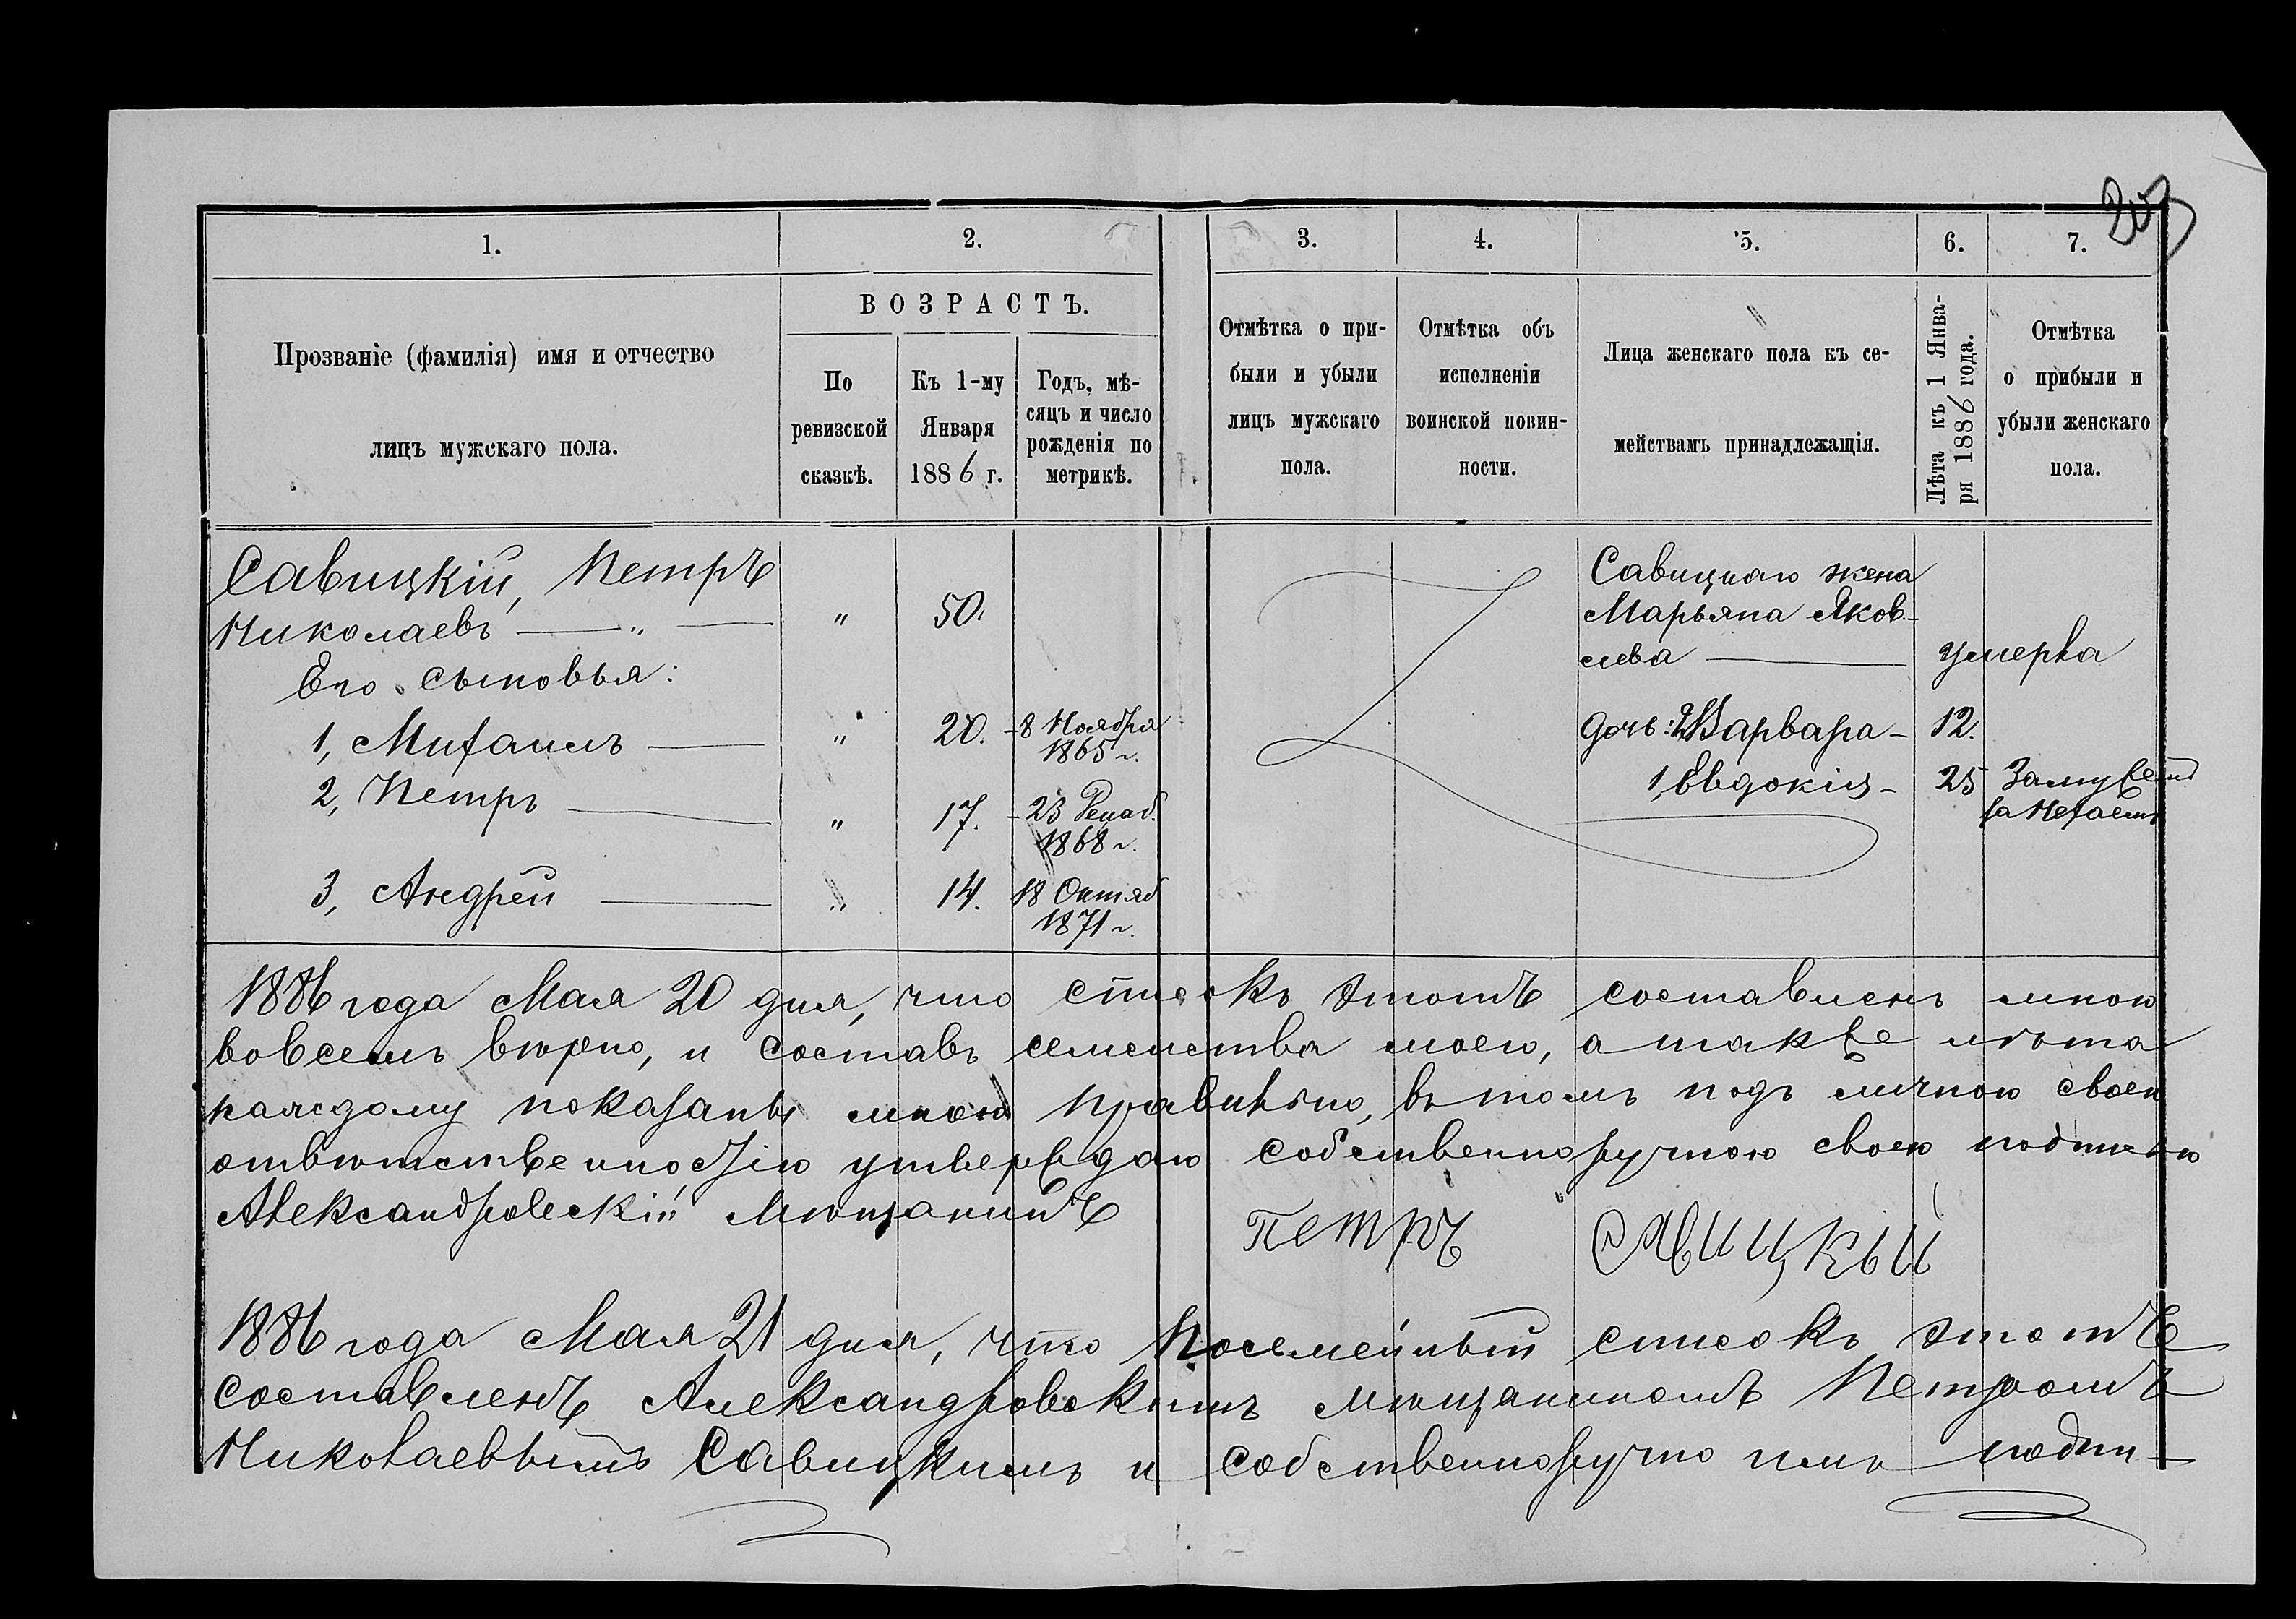 1.
2.
3.
4.
5.
6.
7.
Прозваніе (фамилія) имя и отчество
лицъ мужскаго пола.
ВОЗРАСТЪ.
По
ревизской
сказкѣ.
Къ 1-му
Января
1886 г.
Годъ, мѣ-
сяцъ и число
рожденія по
метрикѣ.
Отмѣтка о при-
были и убыли
лицъ мужскаго
пола.
Отмѣтка объ
исполненіи
воинской повин-
ности.
Лица женскаго пола къ се-
мействамъ принадлежащія.
Лѣта къ 1 Янва-
ря 1886 года.
Отмѣтка
о прибыли и
убыли женскаго
пола.
Савицкій, Петръ
Николаевъ — „ — „ 50.
Его сыновья:
1, Михаилъ — „ 20. - 8 Ноября
1865 г.
2, Петръ — „ 17. - 23 Декаб.
1868 г.
3, Андрей — „ 14. 18 Октяб
1871 г.
Савицкаго жена
Марьяна Яков-
лева — умерла
дочь: 2, Варвара - 12.
1, Евдокія - 25 Замужемъ
за
1886 года Мая 20 дня, что списокъ этотъ составленъ мною
вовсемъ вѣрно, и составъ семейства моего, а также лѣта
каждому показаны мною правильно, въ томъ подъ личною своею
отвѣтственностію утверждаю собственноручною своею подписью
Александровскій Мѣщанинъ Петръ Савицкый
1886 года Мая 21 дня, что Посемейный списокъ этотъ
составленъ Александровскимъ мѣщаниномъ Петромъ
Николаевымъ Савицкимъ и собственноручно имъ подпи-